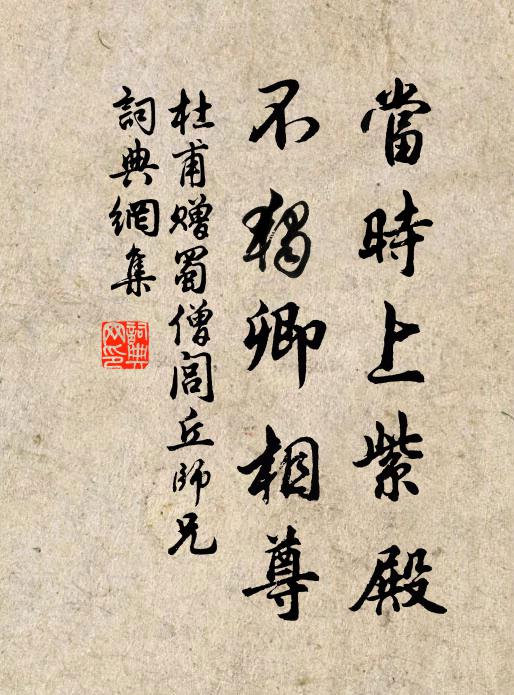 當時上紫殿
不獨卿相尊
杜甫贈蜀僧閭丘師兄
詞典網集
詞典網印